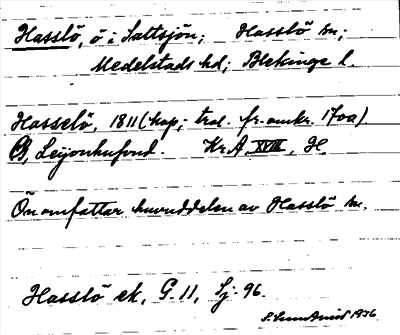 Hasslö, ö i Saltsjön; Hasslö sn;
Medelstads hd; Blekinge l.
Hasselö, 1811 (kop; trol. fr. omkr. 1700).
B, Leijonhufvud. Kr. A, XVIII, H.
Ön omfattar huvuddelen av Hasslö sn.
Hasslö ek, G. 11, Sj. 96.
1936